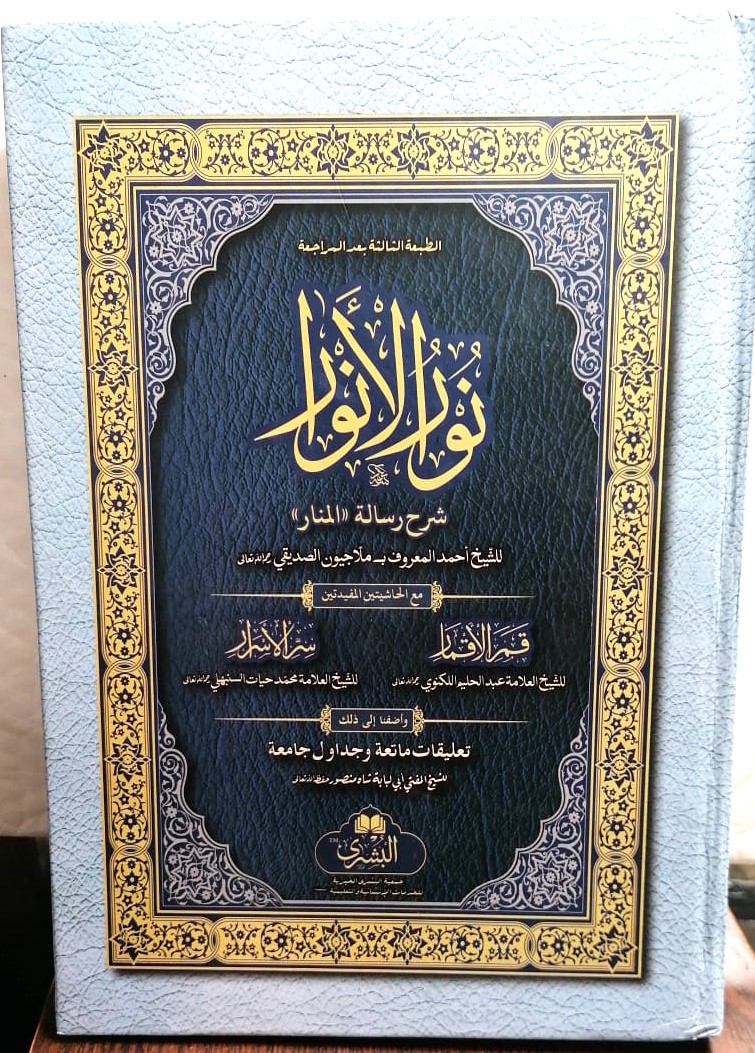 الطبعة الثالثة بعد المراجعة
نُورُ الأَنوَار
شرح رسالة «المنار»
للشيخ أحمد المعروف بـ ملاجيون الصديقي رحمه الله تعالى
مع الحاشيتين المفيدتين
قمر الأقمار
للشيخ العلامة عبد الحليم اللكنوي رحمه الله تعالى
سر الأسرار
للشيخ العلامة محمد حيات السنبهلي رحمه الله تعالى
وأضفنا إلى ذلك
تعليقات ماتعة وجداول جامعة
للشيخ المفتي أبي لبابة شاه منصور حفظه الله تعالى
البشرى TM
جمعية البشرى الخيرية
للخدمات الإنسانية والتعليمية